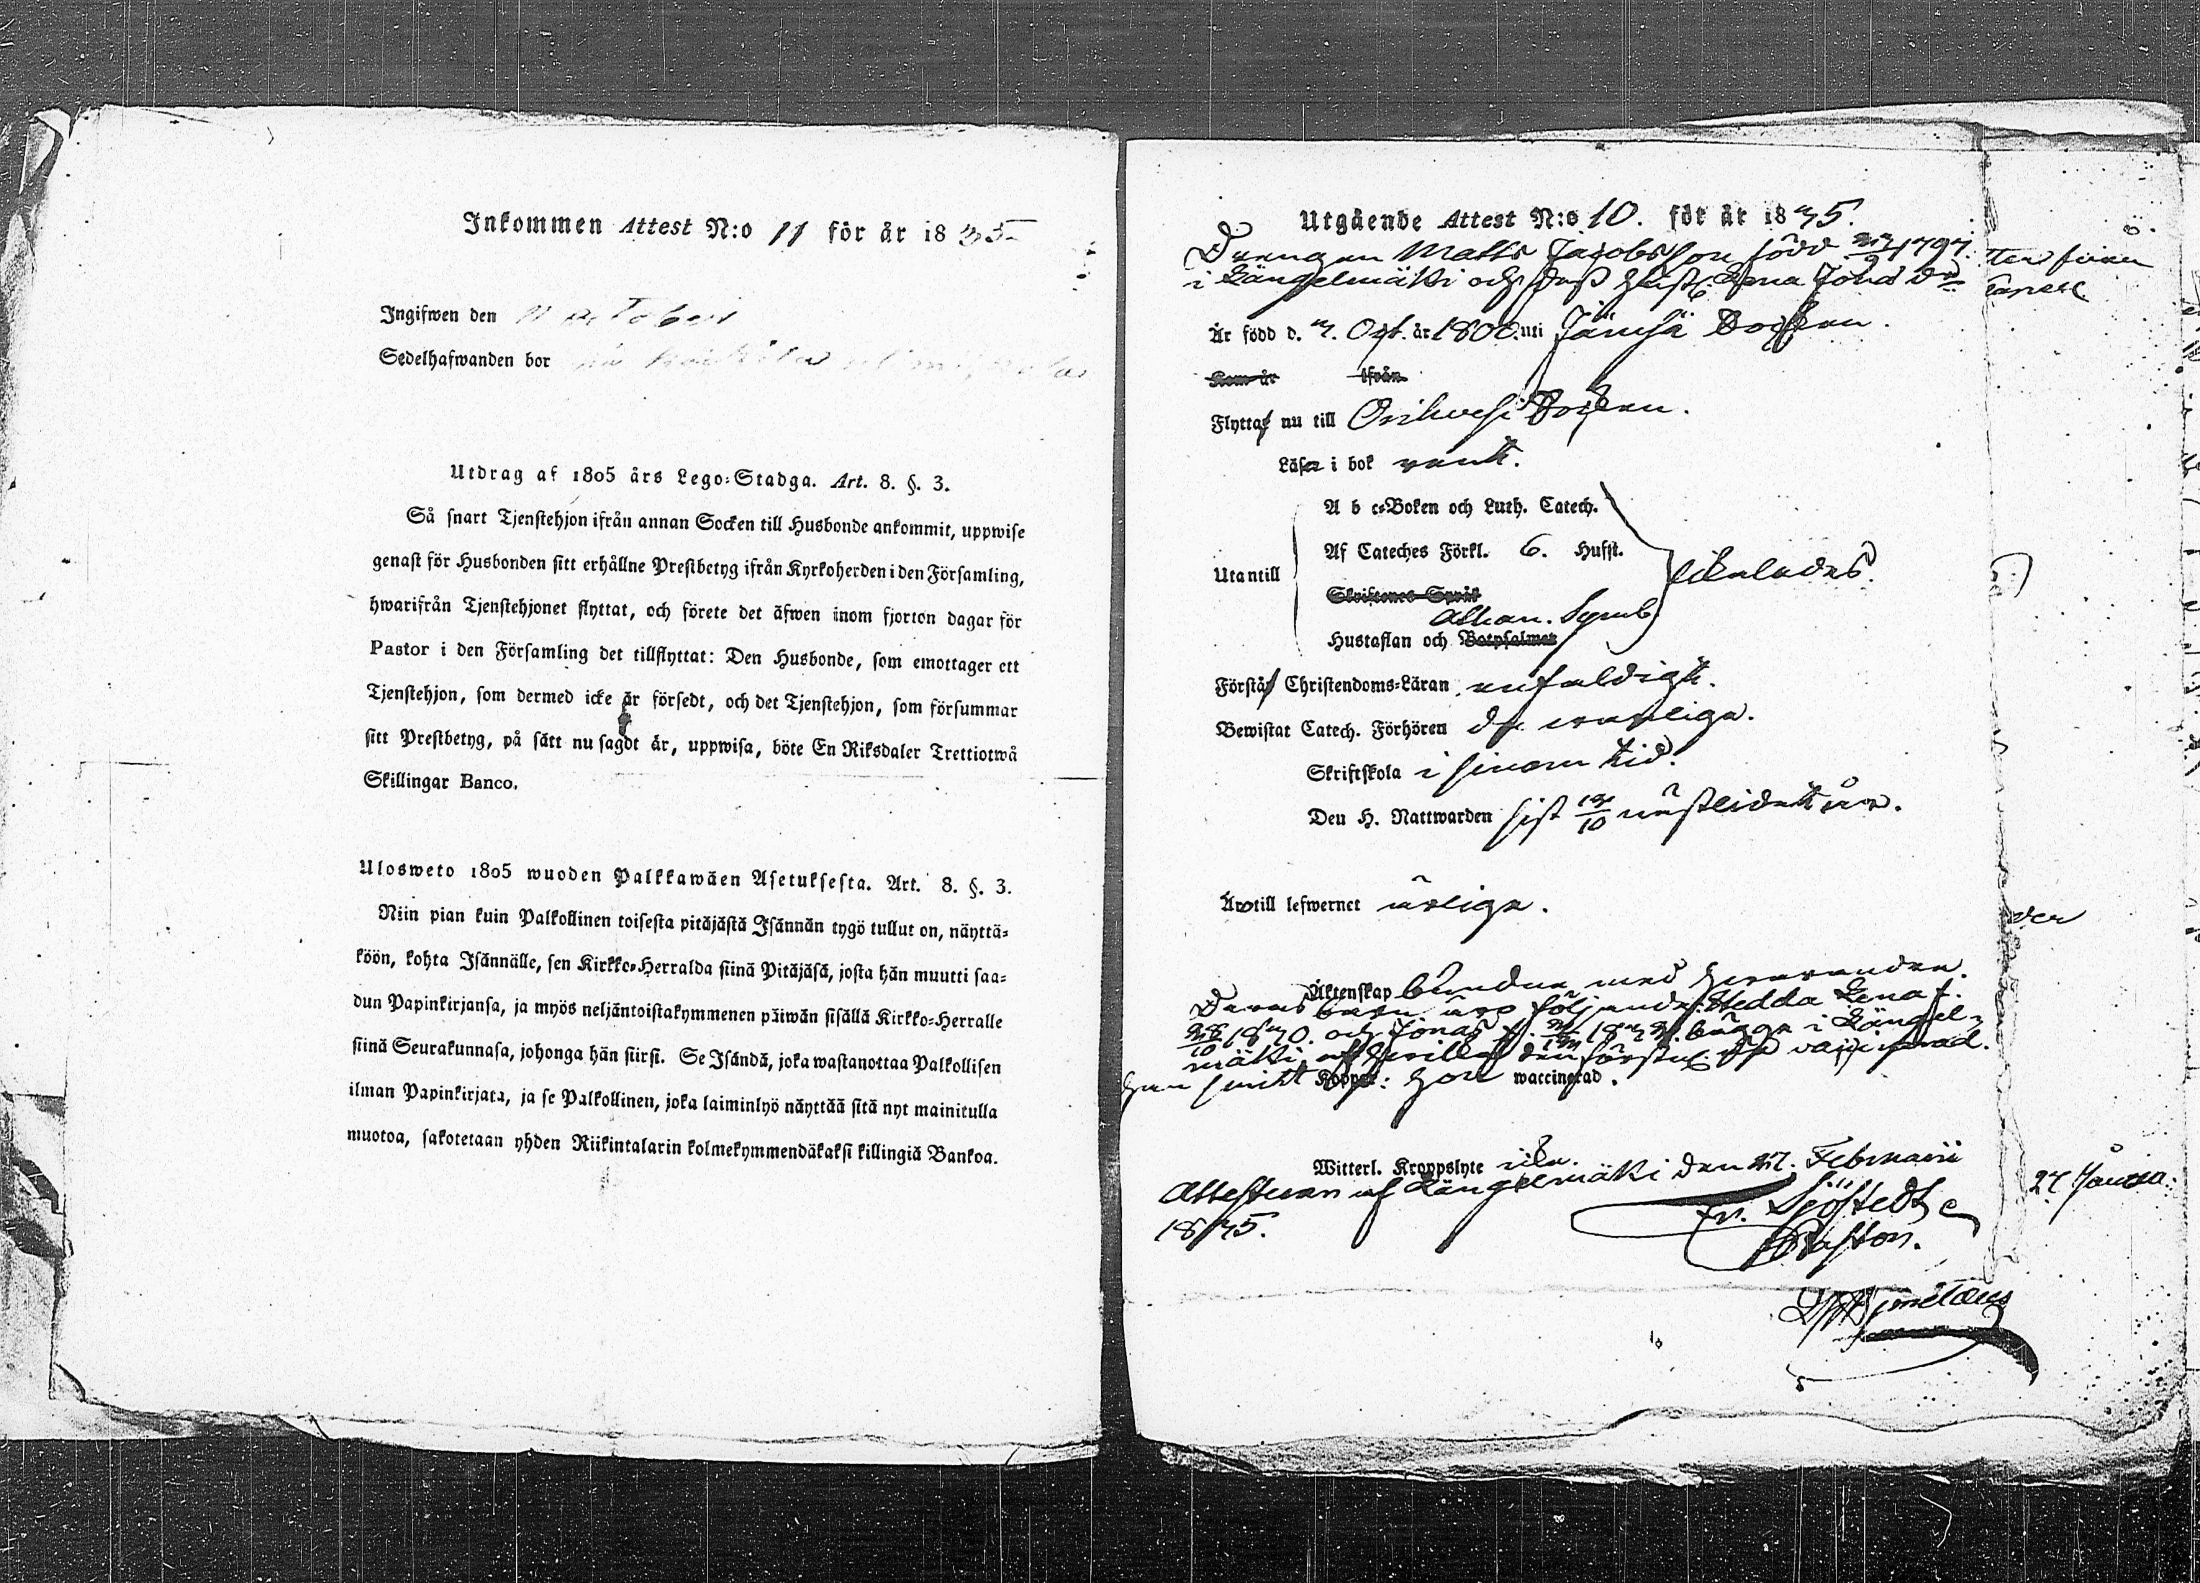 Inkommen Attest N:o 11 för år 1835
Ingifwen den 11 october
Sedelhafwanden bor
Utdrag af 1805 års Lego-Stadga. Art. 8. §. 3.
Så snart Tjenstehjon ifrån annan Socken till Husbonde ankommit, uppwise
genast för Husbonden sitt erhållne Prestbetyg ifrån Kyrkoherden i den Församling,
hwarifrån Tjenstehjonet flyttat, och förete det äfwen inom fjorton dagar för
Pastor i den Församling det tillflyttat: Den Husbonde, som emottager ett
Tjenstehjon, som dermed icke är försedt, och det Tjenstehjon, som försummar
sitt Prestbetyg, på sätt nu sagdt är, uppwisa, böte En Riksdaler Trettiotwå
Skillingar Banco.
Ulosweto 1805 wuoden Palkkawäen Asetuksesta. Art. 8. §. 3.
Niin pian kuin Palkollinen toisesta pitäjästä Isännän tygö tullut on, näyttä-
köön, kohta Isännälle, sen Kirkko-Herralda siinä Pitäjäsä, josta hän muutti saa-
dun Papinkirjansa, ja myös neljäntoistakymmenen päiwän sisällä Kirkko-Herralle
siinä Seurakunnasa, johonga hän siirsi. Se Isändä, joka wastanottaa Palkollisen
ilman Papinkirjata, ja se Palkollinen, joka laiminlyö näyttää sitä nyt mainitulla
muotoa, sakotetaan yhden Riikintalarin kolmekymmendäkaksi killingiä Bankoa.
Utgående Attest N:o 10. för år 1835.
Drengen Matts Jacobsson född 1797
i Längelmäki och dess hust. Lena Jonas dr
Är född d. 3. Oct. år 1800. uti Jämsä Socken.
Kom år ifrån
Flyttar nu till Orihvesi Socken.
Läser i bok rent.
A b c-Boken och Luth. Catech.
Af Cateches Förkl. 6. Hufst.
Utantill likaledes.
Skriftenes Språk
Athan. Symb
Hustaflan och Botpsalmer
Förstår Christendoms-Läran enfaldigt.
Bewistat Catech. Förhören de wanliga.
Skriftskola i sinom tid.
Den H. Nattwarden sist /10 nästledit år.
Är till lefwernet ärliga.
Äktenskap bundna med hwarandra.
Deras barn äro följande: Hedda Lena f.
28/10 1830. och Jonas f. 1833. bägge i Längel-
mäki, af hwilka den första är vaccinerad.
han haft Koppor: hon waccinerad.
Witterl. Kroppslyte utan.
Attesteras af Längelmäki den 27. Februarii
1835. Er. Sjöstedt
Pastor.
27 Janua